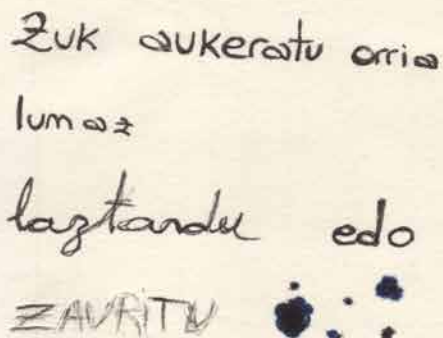 Zuk aukeratu orria
lumaz
laztandu edo
ZAURITU